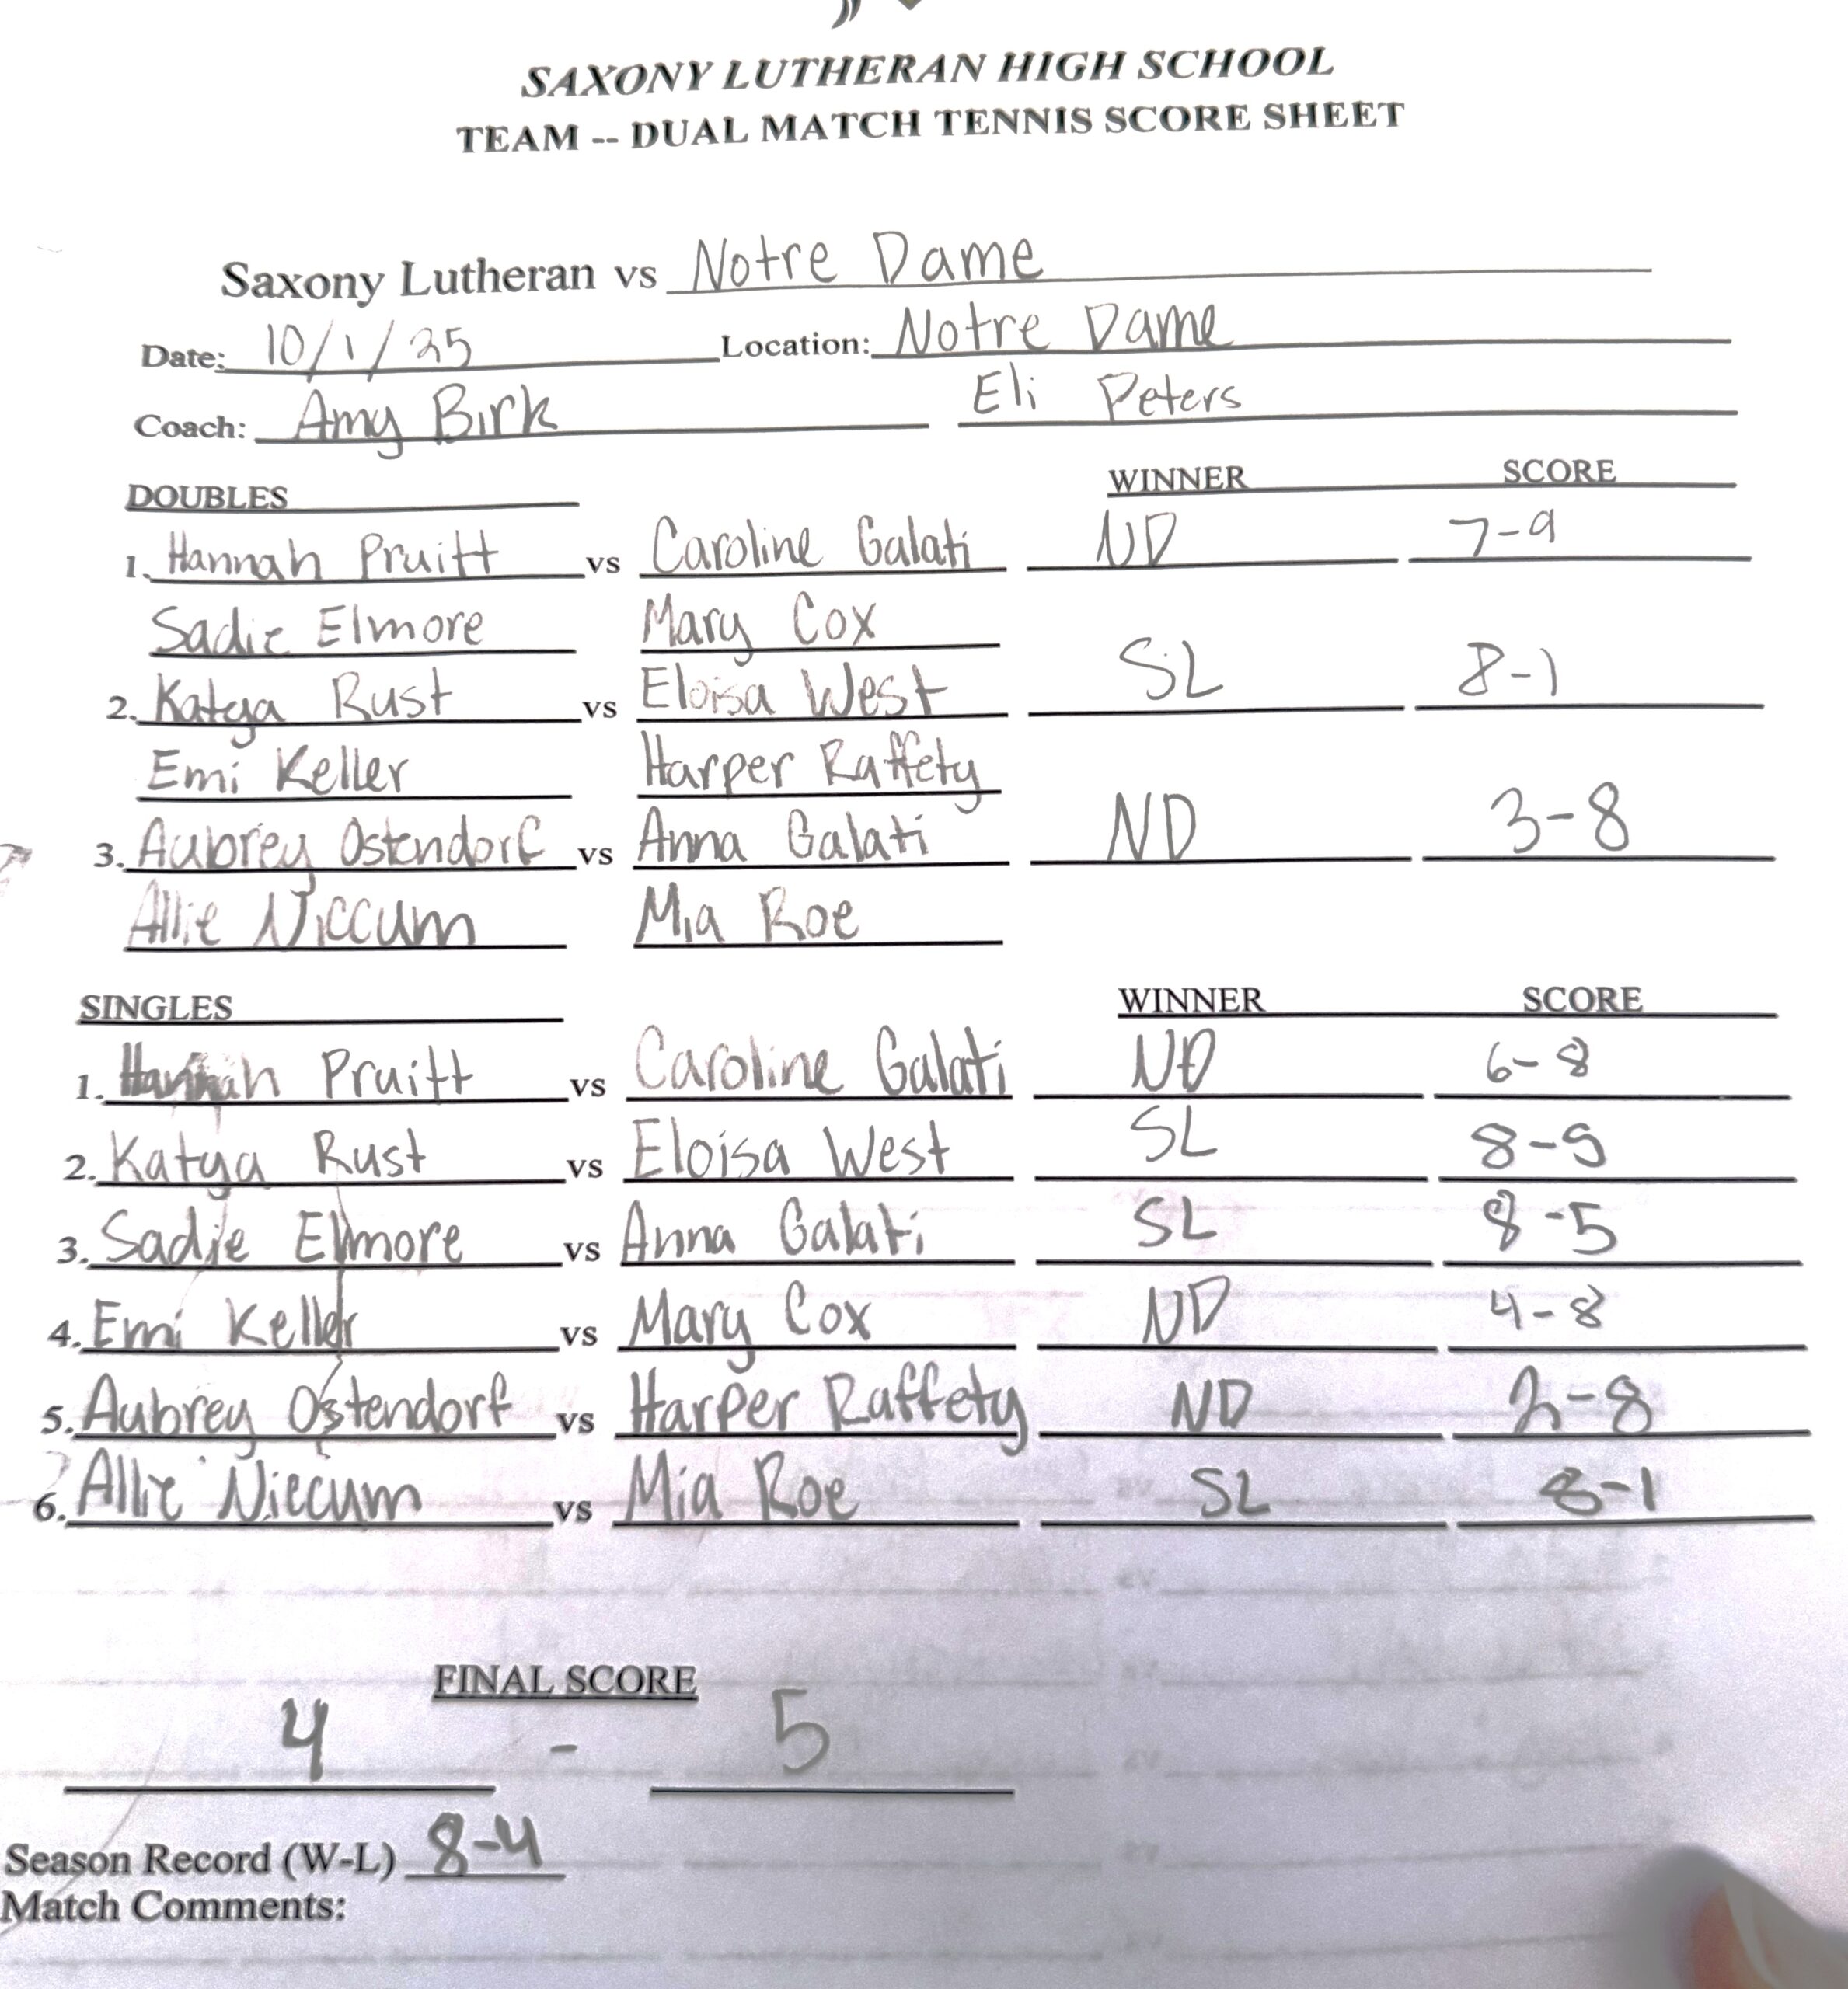 SAXONY LUTHERAN HIGH SCHOOL
TEAM -- DUAL MATCH TENNIS SCORE SHEET
Saxony Lutheran vs Notre Dame
Date: 10/1/25 Location: Notre Dame
Coach: Amy Birk Eli Peters
DOUBLES WINNER SCORE
1. Hannah Pruitt vs Caroline Galati ND 7-9
Sadie Elmore Mary Cox
2. Katya Rust vs Eloisa West SL 8-1
Emi Keller Harper Raffety
3. Aubrey Ostendorf vs Anna Galati ND 3-8
Allie Niccum Mia Roe
SINGLES WINNER SCORE
1. Hannah Pruitt vs Caroline Galati ND 6-8
2. Katya Rust vs Eloisa West SL 8-5
3. Sadie Elmore vs Anna Galati SL 8-5
4. Emi Keller vs Mary Cox ND 4-8
5. Aubrey Ostendorf vs Harper Raffety ND 2-8
6. Allie Niccum vs Mia Roe SL 8-1
FINAL SCORE
4 - 5
Season Record (W-L) 8-4
Match Comments: